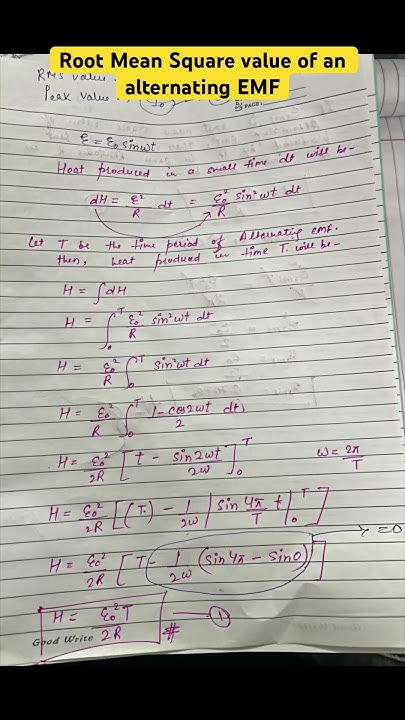 Root Mean Square value of an
alternating EMF
RMS value
Peak value
PAGE
ε = ε₀ sinωt
Heat produced in a small time dt will be-
dH = ε²/R dt = ε₀²/R sin²ωt dt
Let T be the time period of Alternating emf.
then, heat produced in time T. will be-
H = ∫dH
H = ∫₀ᵀ ε₀²/R sin²ωt dt
H = ε₀²/R ∫₀ᵀ sin²ωt dt
H = ε₀²/R ∫₀ᵀ (1-cos2ωt)/2 dt
H = ε₀²/2R [t - sin2ωt/2ω]₀ᵀ ω = 2π/T
H = ε₀²/2R [(T) - 1/2ω |sin 4π/T t|₀ᵀ]
H = ε₀²/2R [T - 1/2ω (sin4π - sin0)] = 0
H = ε₀²T/2R # ①
Good Write